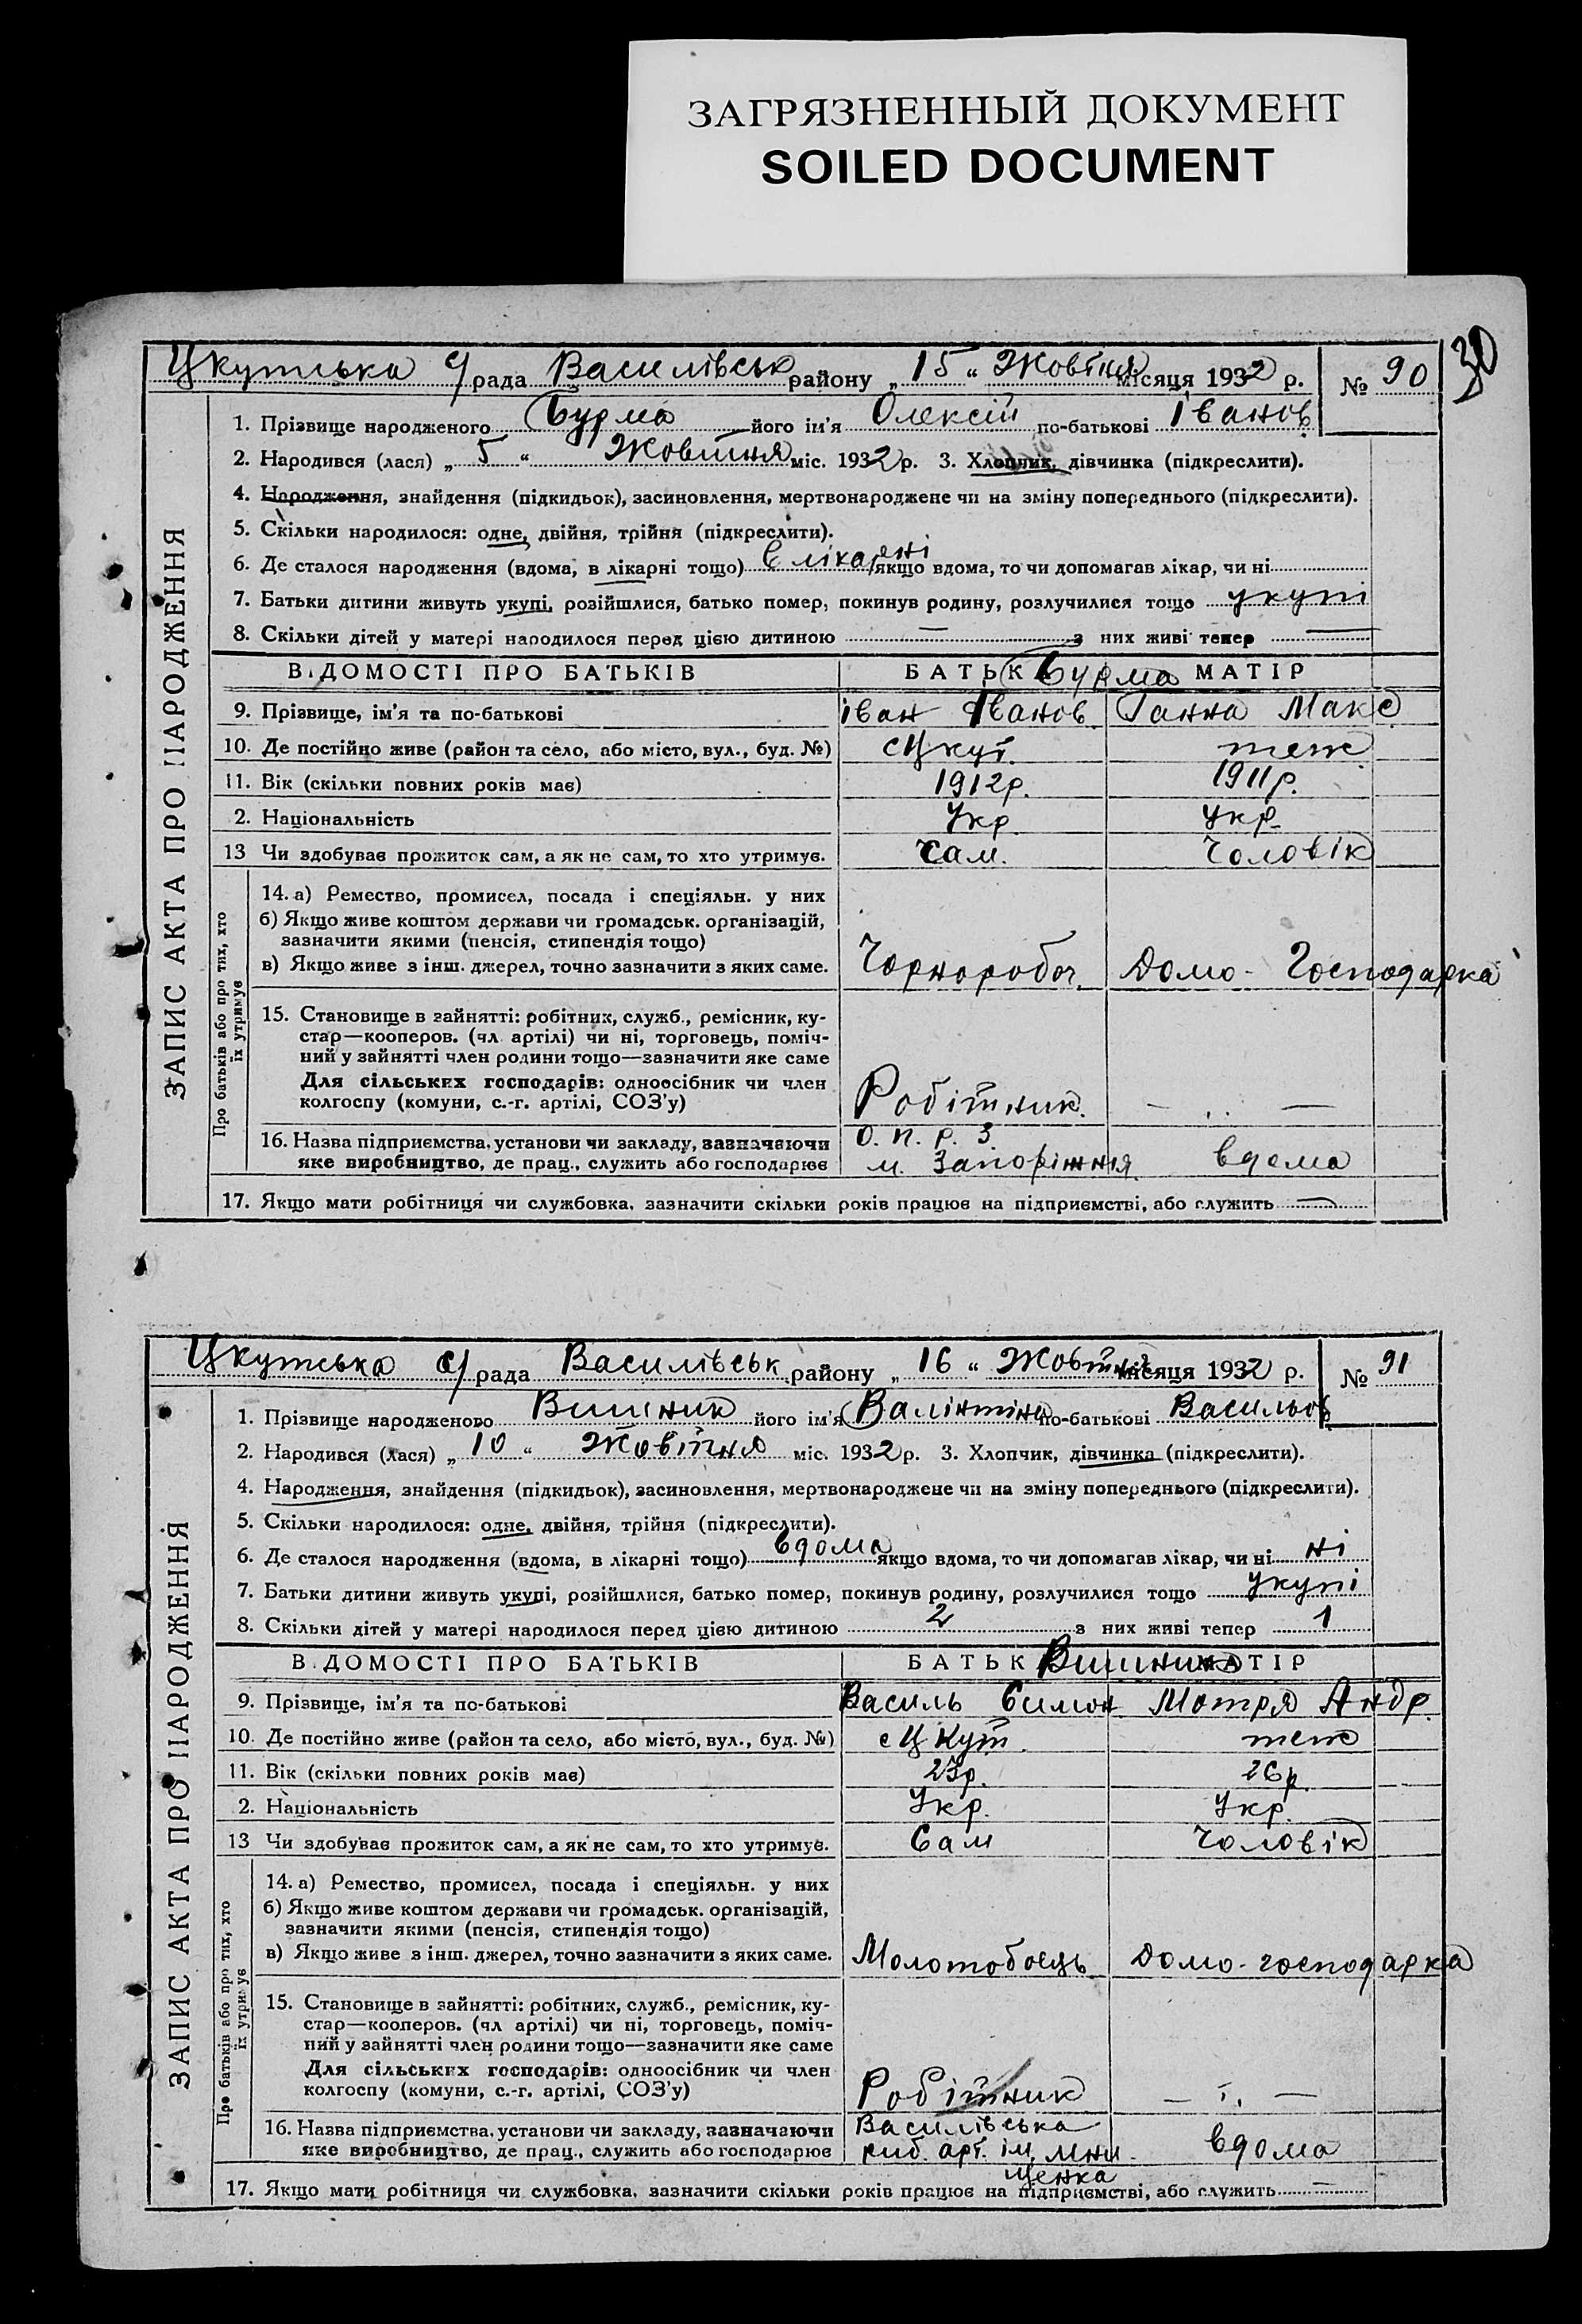 ЗАГРЯЗНЕННЫЙ ДОКУМЕНТ
SOILED DOCUMENT
30
Цкутська с/рада Василівськ району „15“ Жовтня місяця 1932 р. № 90
ЗАПИС АКТА ПРО НАРОДЖЕННЯ
1. Прізвище народженого Бурма його ім'я Олексій по-батькові Іванов
2. Народився (лася) „5“ Жовтня міс. 1932 р. 3. Хлопчик, дівчинка (підкреслити).
4. Народження, знайдення (підкидьок), засиновлення, мертвонароджене чи на зміну попереднього (підкреслити).
5. Скільки народилося: одне, двійня, трійня (підкреслити).
6. Де сталося народження (вдома, в лікарні тощо) в лікарні якщо вдома, то чи допомагав лікар, чи ні
7. Батьки дитини живуть укупі, розійшлися, батько помер, покинув родину, розлучилися тощо укупі
8. Скільки дітей у матері народилося перед цією дитиною — з них живі тепер —
ВІДОМОСТІ ПРО БАТЬКІВ БАТЬК Бурма МАТІР
9. Прізвище, ім'я та по-батькові Іван Іванов Ганна Макс
10. Де постійно живе (район та село, або місто, вул., буд. №) с Цкут. теж
11. Вік (скільки повних років має) 1912р. 1911р.
2. Національність Укр. Укр.
13 Чи здобував прожиток сам, а як не сам, то хто утримує. Сам. Чоловік
Про батьків або про тих, хто їх утримує
14. а) Ремество, промисел, посада і спеціяльн. у них
б) Якщо живе коштом держави чи громадськ. організацій,
зазначити якими (пенсія, стипендія тощо)
в) Якщо живе з інш. джерел, точно зазначити з яких саме. Чорноробоч. Домо-Господарка
15. Становище в зайнятті: робітник, служб., ремісник, ку-
стар—кооперов. (чл. артілі) чи ні, торговець, поміч-
ний у зайнятті член родини тощо—зазначити яке саме
Для сільських господарів: одноосібник чи член
колгоспу (комуни, с.-г. артілі, СОЗ'у) Робітник. — „ —
16. Назва підприємства, установи чи закладу, зазначаючи О. п. р. З.
яке виробництво, де прац., служить або господарює м. Запоріжжя вдома
17. Якщо мати робітниця чи службовка, зазначити скільки років працює на підприємстві, або служить —
Цкутська с/рада Василівськ району „16“ Жовтня місяця 1932 р. № 91
ЗАПИС АКТА ПРО НАРОДЖЕННЯ
1. Прізвище народженого Вишник його ім'я Валінтіна по-батькові Васильов
2. Народився (лася) „10“ Жовтня міс. 1932 р. 3. Хлопчик, дівчинка (підкреслити).
4. Народження, знайдення (підкидьок), засиновлення, мертвонароджене чи на зміну попереднього (підкреслити).
5. Скільки народилося: одне, двійня, трійня (підкреслити).
6. Де сталося народження (вдома, в лікарні тощо) вдома якщо вдома, то чи допомагав лікар, чи ні ні
7. Батьки дитини живуть укупі, розійшлися, батько помер, покинув родину, розлучилися тощо укупі
8. Скільки дітей у матері народилося перед цією дитиною 2 з них живі тепер 1
ВІДОМОСТІ ПРО БАТЬКІВ БАТЬК Вишник МАТІР
9. Прізвище, ім'я та по-батькові Василь Симон Мотря Андр.
10. Де постійно живе (район та село, або місто, вул., буд. №) с Цкут. теж
11. Вік (скільки повних років має) 23р. 26р.
2. Національність Укр. Укр.
13 Чи здобував прожиток сам, а як не сам, то хто утримує. Сам Чоловік
Про батьків або про тих, хто їх утримує
14. а) Ремество, промисел, посада і спеціяльн. у них
б) Якщо живе коштом держави чи громадськ. організацій,
зазначити якими (пенсія, стипендія тощо)
в) Якщо живе з інш. джерел, точно зазначити з яких саме. Молотобоєць Домо-господарка
15. Становище в зайнятті: робітник, служб., ремісник, ку-
стар—кооперов. (чл артілі) чи ні, торговець, поміч-
ний у зайнятті член родини тощо—зазначити яке саме
Для сільських господарів: одноосібник чи член
колгоспу (комуни, с.-г. артілі, СОЗ'у) Робітник — „ —
16. Назва підприємства, установи чи закладу, зазначаючи Василівська
яке виробництво, де прац., служить або господарює риб. арт. ім. вдома
17. Якщо мати робітниця чи службовка, зазначити скільки років працює на підприємстві, або служить —